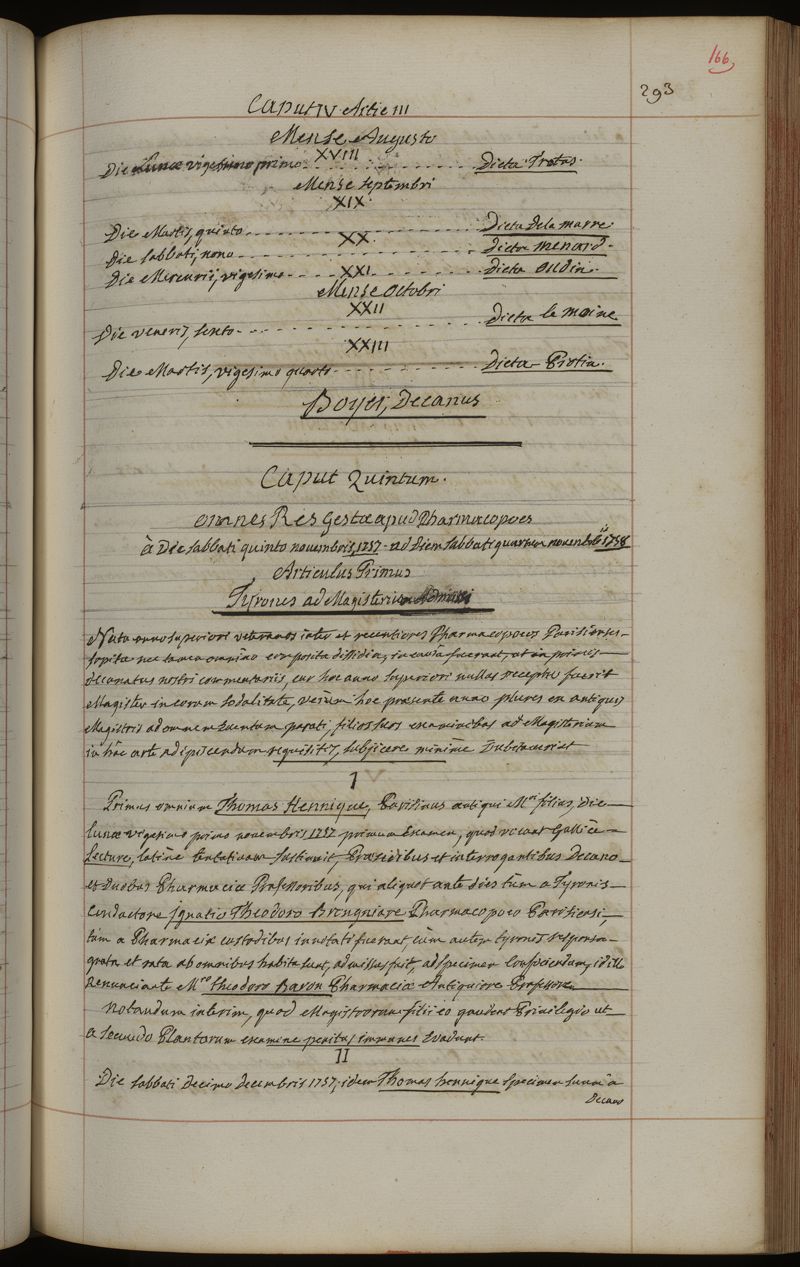 166
293
Caput IV Artic III
Mense Augusto
XVIII
Die Lunæ vigesimo primo - - - - - Dicta Trotas.
Mense septembri
XIX
Die Martis, quinto - - - - - Dicta de la marre.
XX
Die sabbati, nono - - - - - dicta menard.
XXI
Die Mercurii, vigesimo - - - - - Dicta oudin.
Mense octobri
XXII
Die veneris, sexto - - - - - Dicta le moine
XXIII
Die Martis, vigesimo quarto - - - - - Dicta Erotin.
Boyer, Decanus
Caput Quintum.
omnes Res Gestæ apud Pharmacopoeos
à Die sabbati quinto novembris 1757 ad diem sabbati quartum novembris 1758
Articulus Primus
Tyrones ad Magisterium Admissi
Nata anno superiori veteranos inter et recentiores Pharmacopoeos Parisienses
sopita nec tamen omnino composita dissidia, in causa fuerant, ut in primis
decanatus nostri commentariis, cur hoc anno superiori nullus receptus fuerit
Magister in eorum sodalitate, verùm hoc præsente anno plures ex antiquis
Magistris ad omnem eventum parati, filios suos examinibus ad Magisterium
in hâc arte adipiscendum requisitis, subjicere minime dubitaverunt
I
Primus omnium Thomas Hennique, Parisinus antiqui Mri filius, die
lunæ vigesimo primo novembris 1757 primum Examen, quod vocant Gallicè
Lecture, latinè tentativam sustinuit, Præsidibus et interrogantibus Decano
et Duobus Pharmaciæ Professoribus, qui aliquot ante dies tùm a Tyronis
Conductore Ignatio Theodoro Brongniare Pharmacopoeo Parisiensi,
tùm a Pharmaciæ custodibus invitati fuerant, cùm autem tyronis responsa
grata et rata ab omnibus habita sunt, admissus fuit, ad specimen conficiendum, id illi
Renunciante Mro theodoro Baron Pharmaciæ Antiquiore Professore.
Notandum interim, quod Magistrorum filii eo gaudent Privilegio ut
a secundo Plantarum examine penitus immunes Evadunt.
II
Die sabbati decimo decembris 1757, idem Thomas hennique specimen suum a
Decano